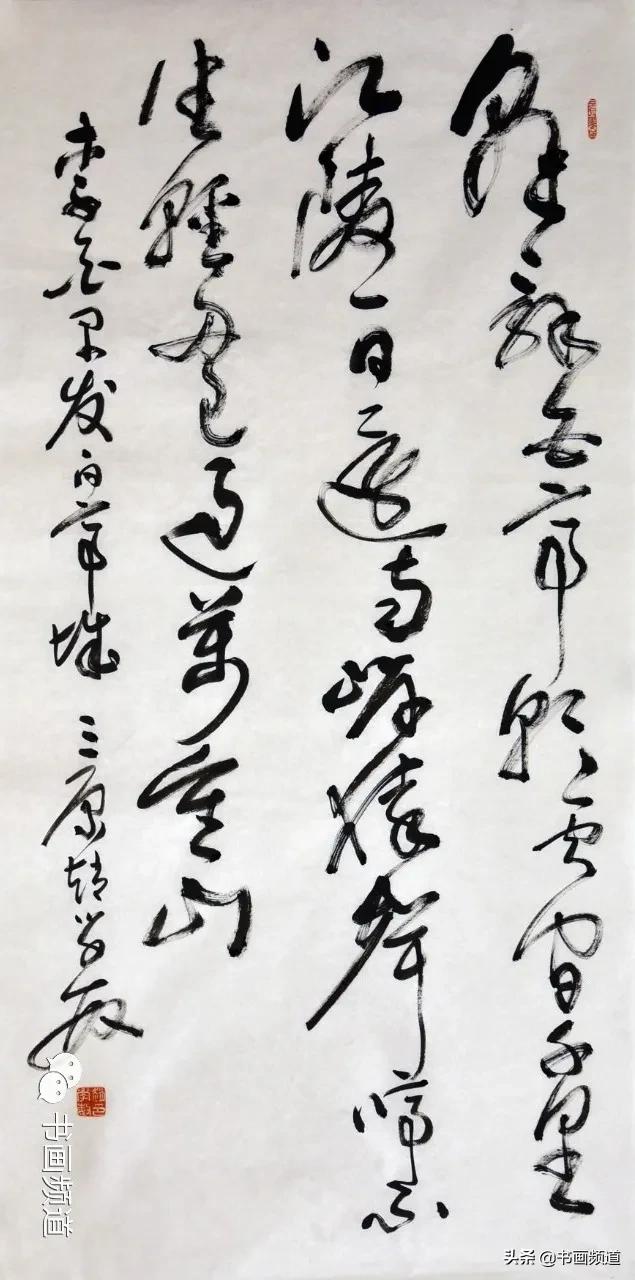 朝辞白帝彩云间千里
江陵一日還两岸猿聲啼不
住輕舟已過萬重山
李白早发白帝城 三原趙学敏
书画频道
头条 @书画频道